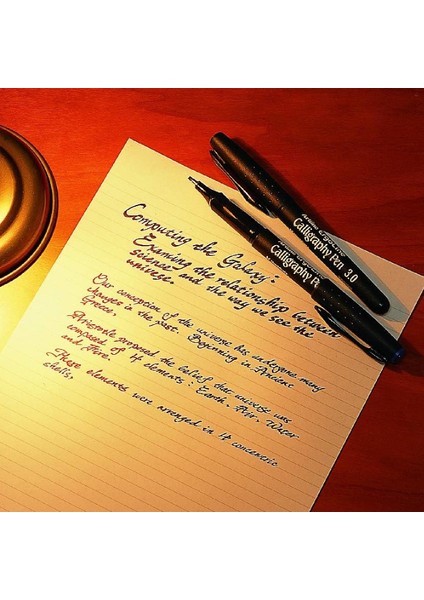 Computing the Galaxy:
Examining the relationship between
science and the way we see the
universe.
Our conception of the universe has undergone many
changes in the past. Beginning in Ancient
Greece,
Aristotle proposed the belief that universe was
composed of 4 elements: Earth, Air, Water
and Fire.
These elements were arranged in 4 concentric
shells,
Calligraphy Pen 3.0
Calligraphy Pe